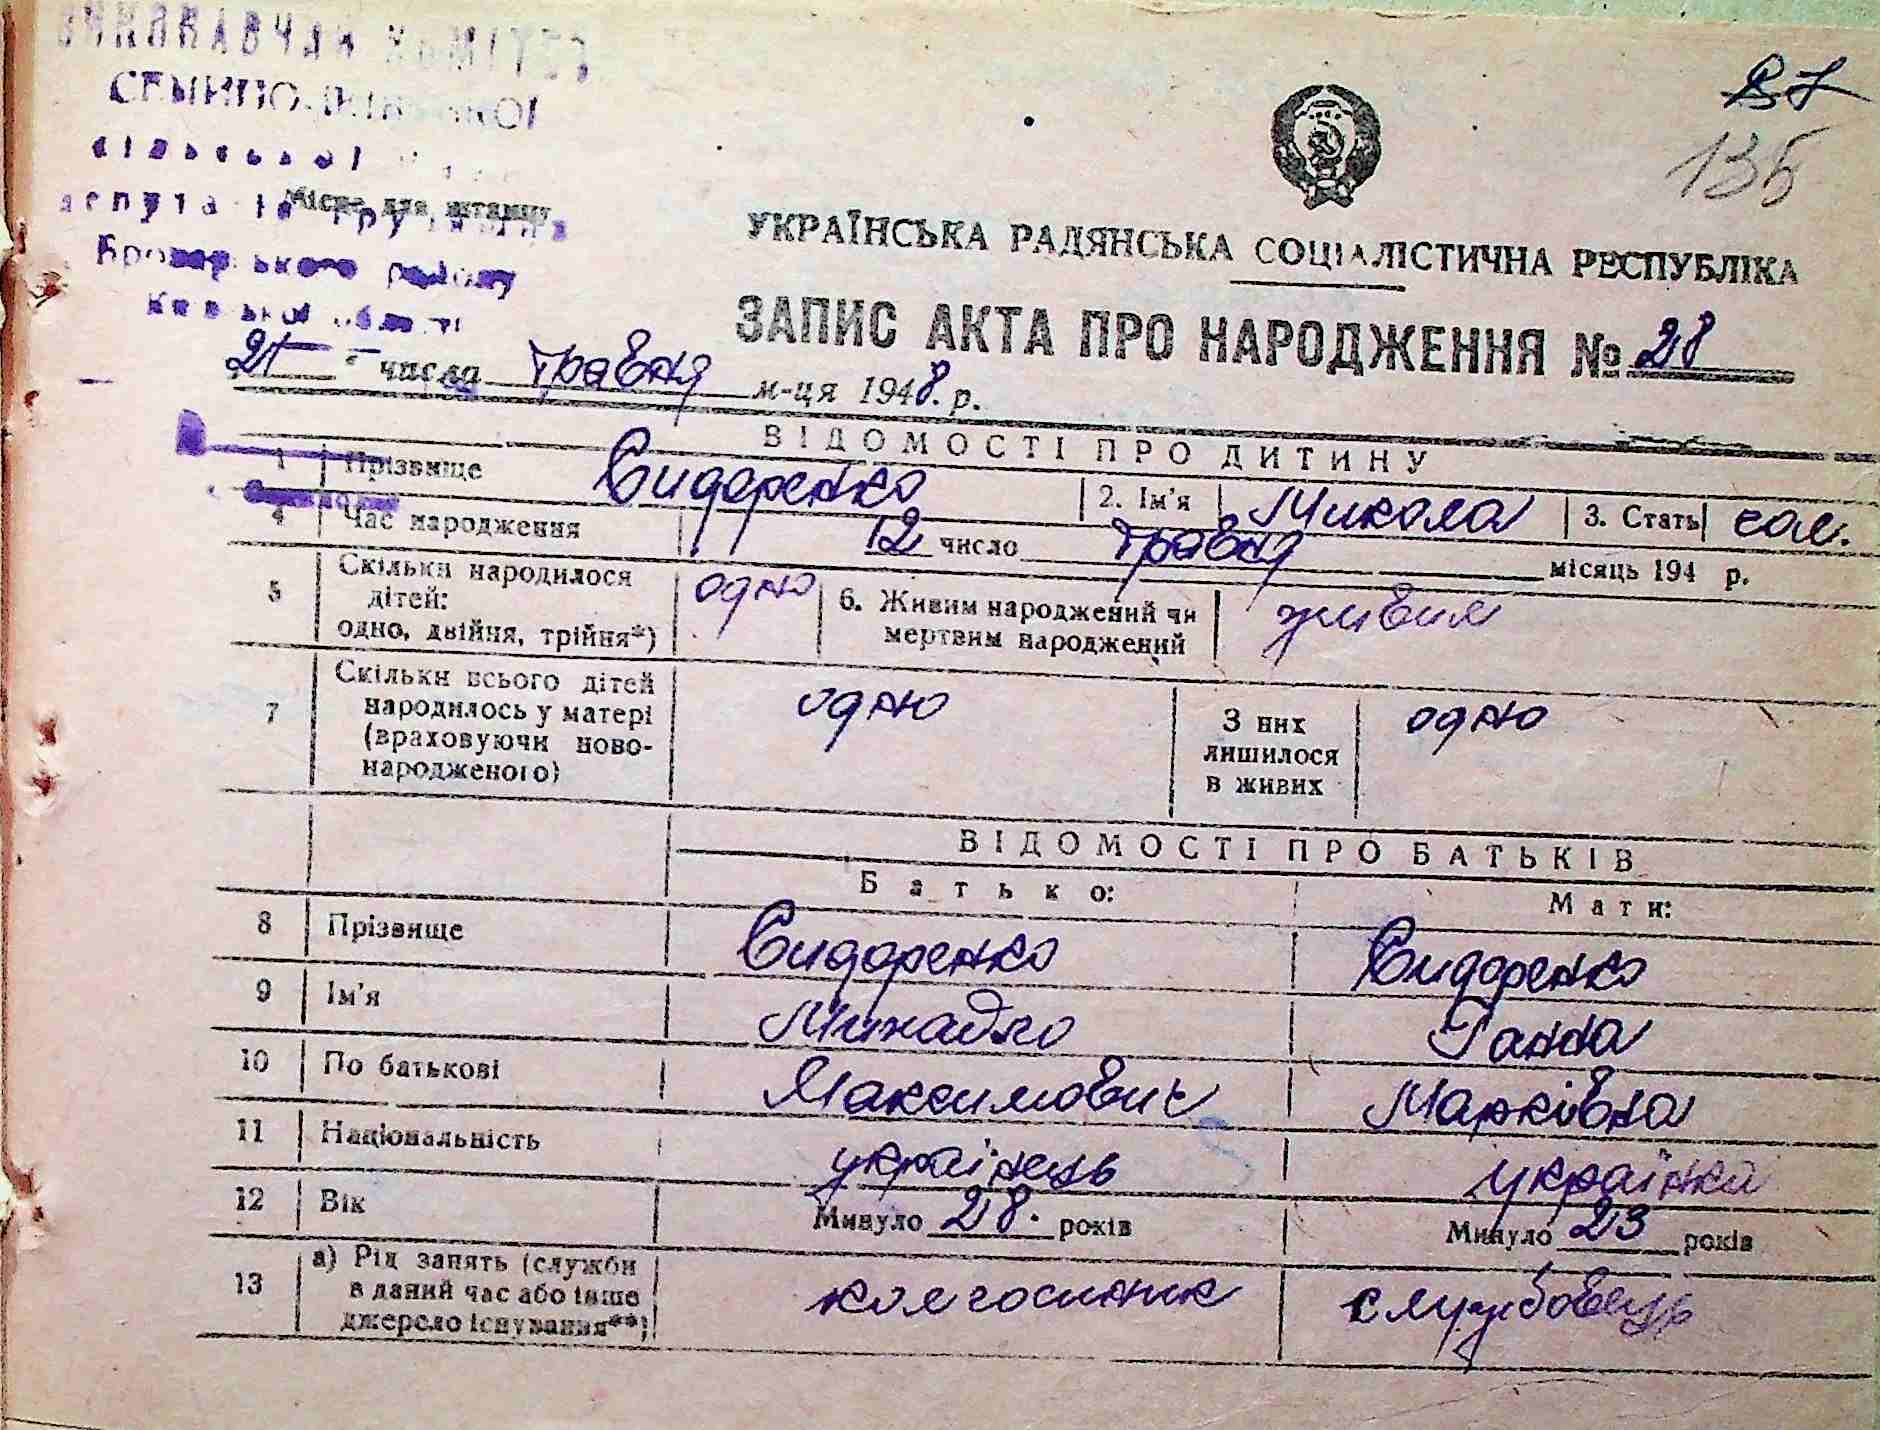 ВИКОНАВЧИЙ КОМІТЕТ
сільської
Місце для штампу
Броварського району
Київської області
87
135
УКРАЇНСЬКА РАДЯНСЬКА СОЦІАЛІСТИЧНА РЕСПУБЛІКА
ЗАПИС АКТА ПРО НАРОДЖЕННЯ № 28
21 числа травня м-ця 1948. р.
ВІДОМОСТІ ПРО ДИТИНУ
1 Прізвище Сидоренко 2. Ім'я Микола 3. Стать чол.
4 Час народження 12 число травня місяць 194 р.
5 Скільки народилося дітей: одно, двійня, трійня*) одно 6. Живим народжений чи мертвим народжений живим
7 Скільки всього дітей народилось у матері (враховуючи ново-народженого) одно З них лишилося в живих одно
ВІДОМОСТІ ПРО БАТЬКІВ
Батько: Мати:
8 Прізвище Сидоренко Сидоренко
9 Ім'я Михайло Ганна
10 По батькові Максимович Марківна
11 Національність українець українка
12 Вік Минуло 28. років Минуло 23 років
13 а) Рід занять (служби в даний час або інше джерело існування**) колгоспник службовець